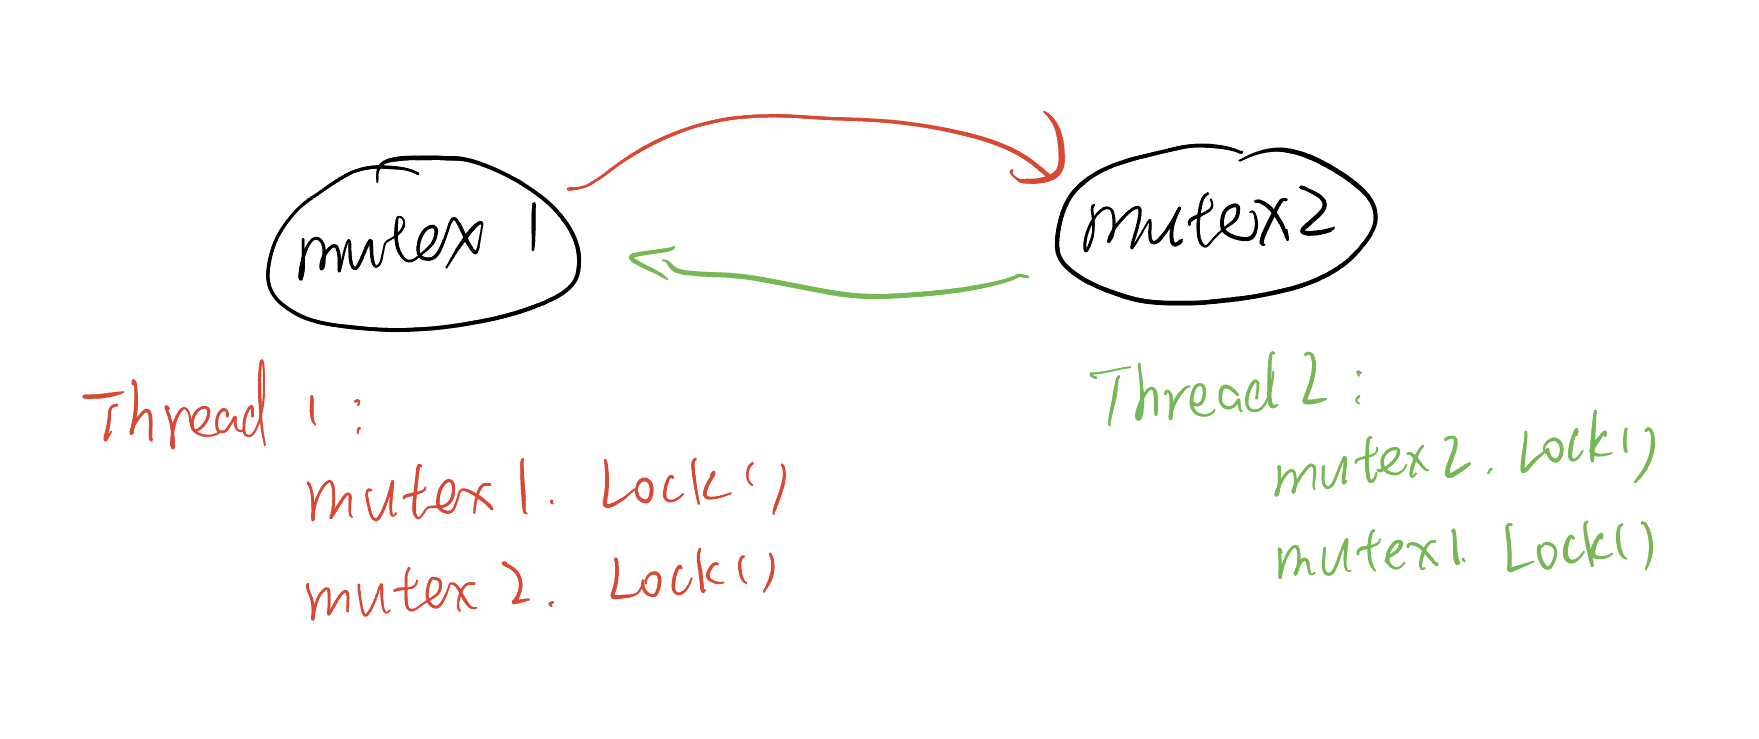 mutex 1
mutex2
Thread 1:
mutex1. Lock()
mutex 2. Lock()
Thread 2:
mutex2. Lock()
mutex1. Lock()